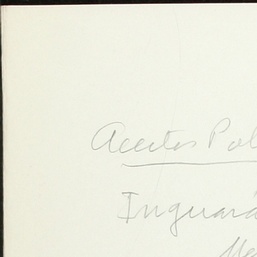 Aceites Pol
Inguará
Me